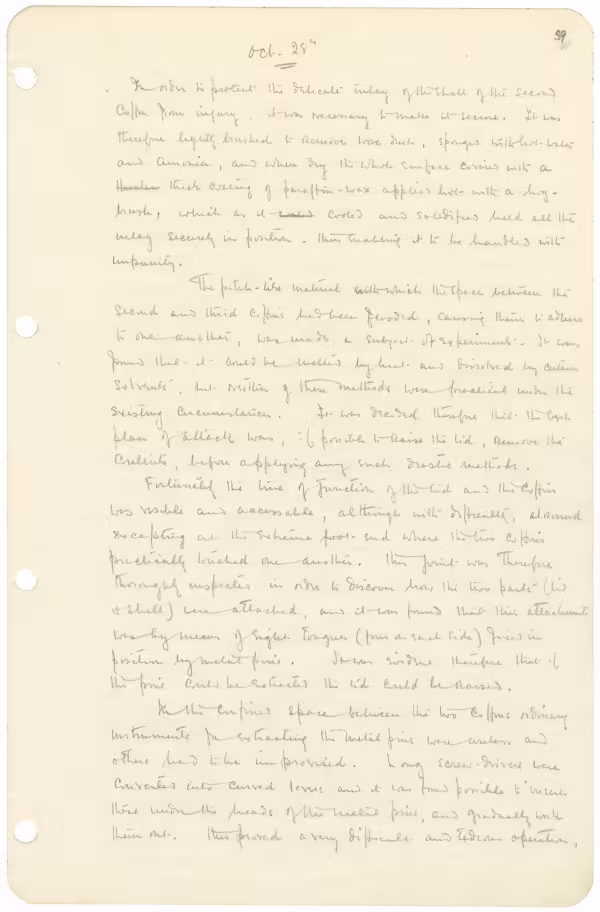 39
Oct. 28th
In order to protect the delicate inlay of the shell of the second
Coffin from injury, it was necessary to make it secure. It was
therefore lightly brushed to remove loose dust, sponged with hot-water
and amonia, and when dry the whole surface covered with a
thick coating of paraffin-wax applied hot with a long-
brush, which as it cooled and solidified held all the
inlay securely in position - thus enabling it to be handled with
impunity.
The pitch-like material with which the space between the
second and third coffins had been flooded, causing them to adhere
to one another, was made a subject of experiments. It was
found that it could be melted by heat and dissolved by certain
solvents, but neither of these methods were practical under the
existing circumstances. It was decided therefore that the best
plan of attack was, if possible to raise the lid, remove the
contents, before applying any such drastic methods.
Fortunately the line of junction of the lid and the coffin
was visible and accessable, although with difficulty, all round
excepting at the extreme foot-end where the two coffins
practically touched one another. This joint was therefore
thoroughly inspected in order to discover how the two parts (lid
& shell) were attached, and it was found that this attachment
was by means of eight tongues (four on each side) fixed in
position by metal pins. It was evident therefore that if
the pins could be extracted the lid could be raised.
In the confined space between the two coffins ordinary
instruments for extracting the metal pins were useless and
others had to be improvised. Long screw-drivers were
converted into curved levers and it was found possible to insert
these under the heads of the metal pins, and gradually work
them out. This proved a very difficult and tedious operation,